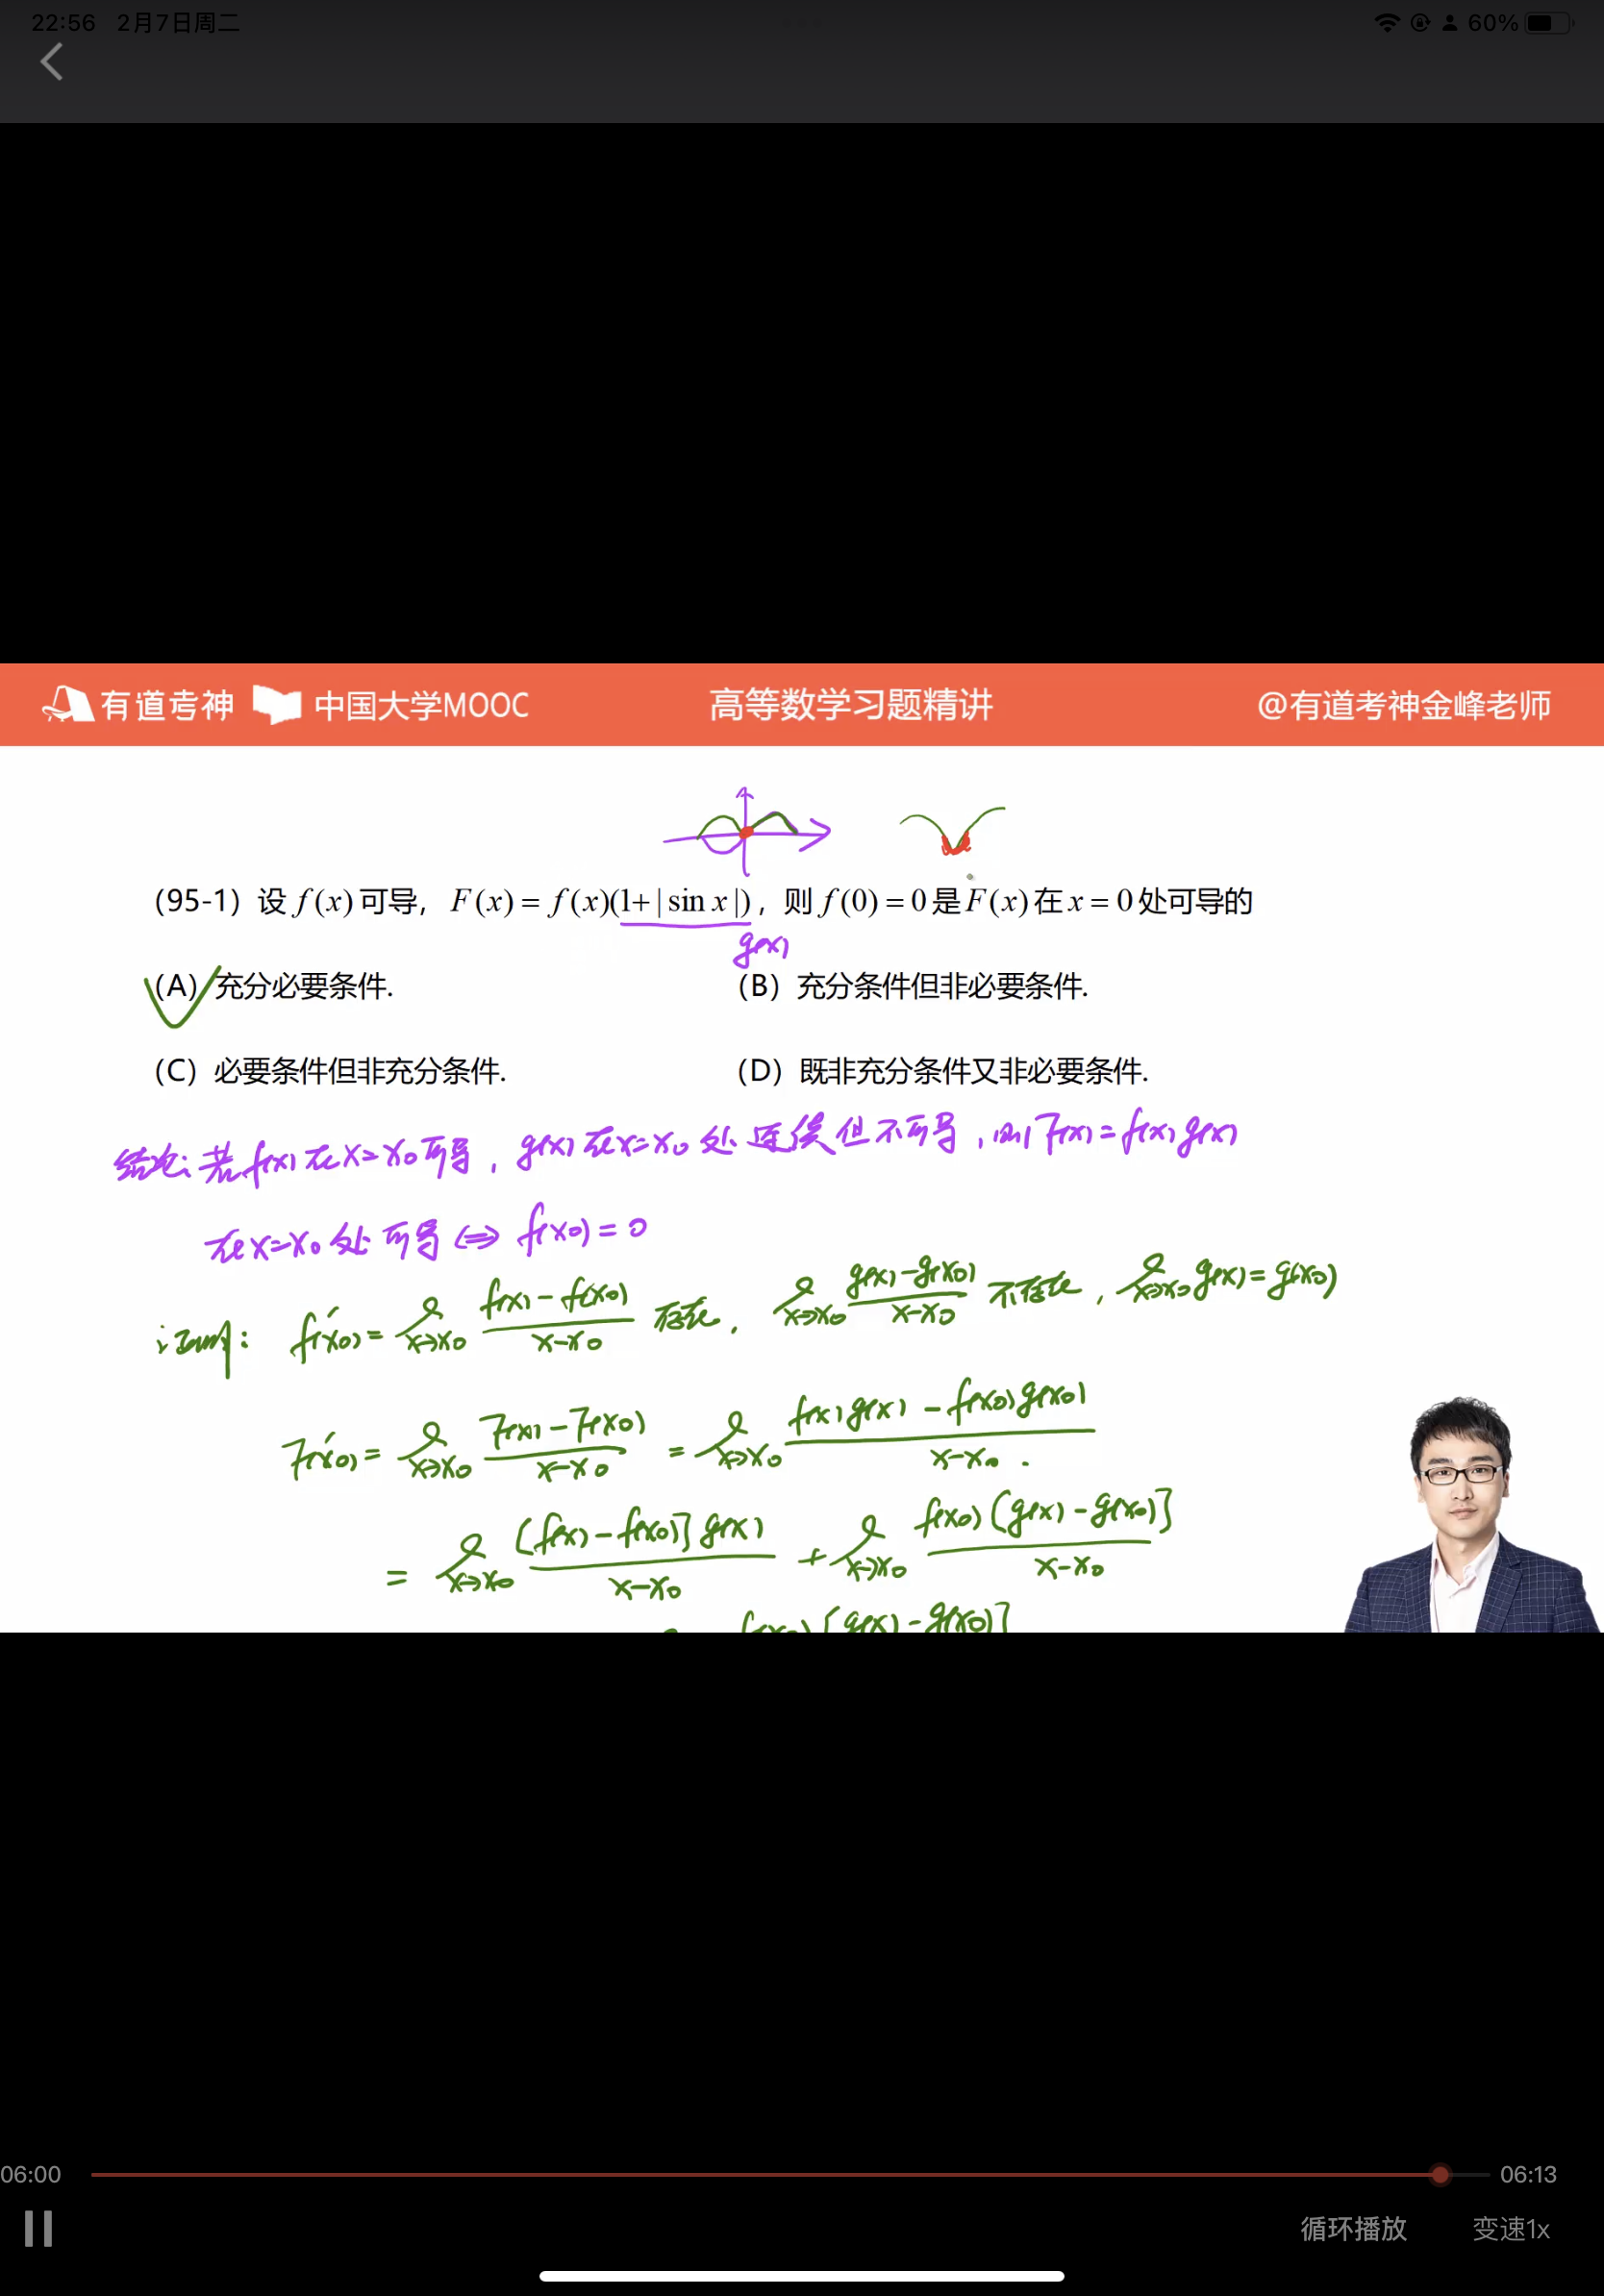 22:56 2月7日周二 60%
有道考神 中国大学MOOC 高等数学习题精讲 @有道考神金峰老师
（95-1）设 f(x) 可导，F(x) = f(x)(1+|sin x|)，则 f(0) = 0 是 F(x) 在 x = 0 处可导的
g(x)
（A）充分必要条件. （B）充分条件但非必要条件.
（C）必要条件但非充分条件. （D）既非充分条件又非必要条件.
结论: 若f(x)在x=x₀可导, g(x)在x=x₀处连续但不可导, 则F(x)=f(x)g(x)
在x=x₀处可导⇔f(x₀)=0
证明: f'(x₀)=lim x→x₀ (f(x)-f(x₀))/(x-x₀) 存在, lim x→x₀ (g(x)-g(x₀))/(x-x₀) 不存在, lim x→x₀ g(x)=g(x₀)
F'(x₀)=lim x→x₀ (F(x)-F(x₀))/(x-x₀) = lim x→x₀ (f(x)g(x)-f(x₀)g(x₀))/(x-x₀).
= lim x→x₀ [f(x)-f(x₀)]g(x)/(x-x₀) + lim x→x₀ f(x₀)[g(x)-g(x₀)]/(x-x₀)
f(x₀)[g(x)-g(x₀)]
06:00 06:13
循环播放 变速1x